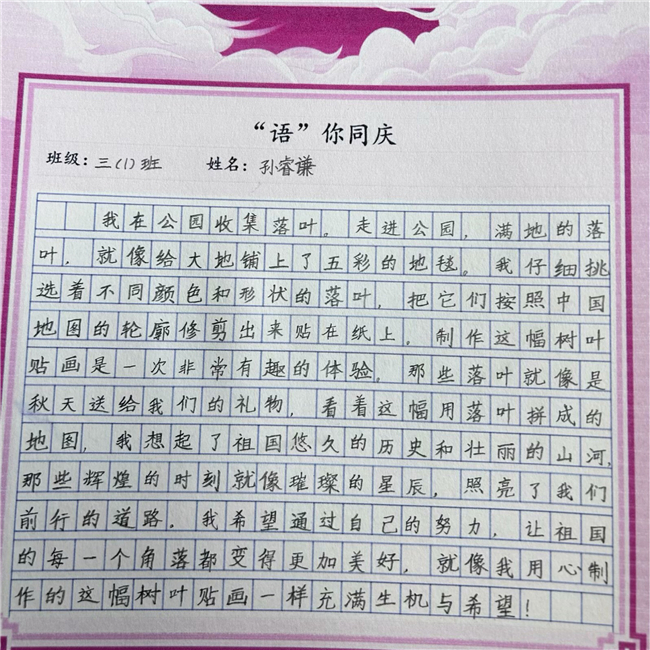 “语”你同庆
班级：三(1)班 姓名：孙睿谦
我在公园收集落叶。走进公园，满地的落
叶，就像给大地铺上了五彩的地毯。我仔细挑
选着不同颜色和形状的落叶，把它们按照中国
地图的轮廓修剪出来贴在纸上。制作这幅树叶
贴画是一次非常有趣的体验。那些落叶就像是
秋天送给我们的礼物，看着这幅用落叶拼成的
地图，我想起了祖国悠久的历史和壮丽的山河，
那些辉煌的时刻就像璀璨的星辰，照亮了我们
前行的道路，我希望通过自己的努力，让祖国
的每一个角落都变得更加美好，就像我用心制
作的这幅树叶贴画一样充满生机与希望！